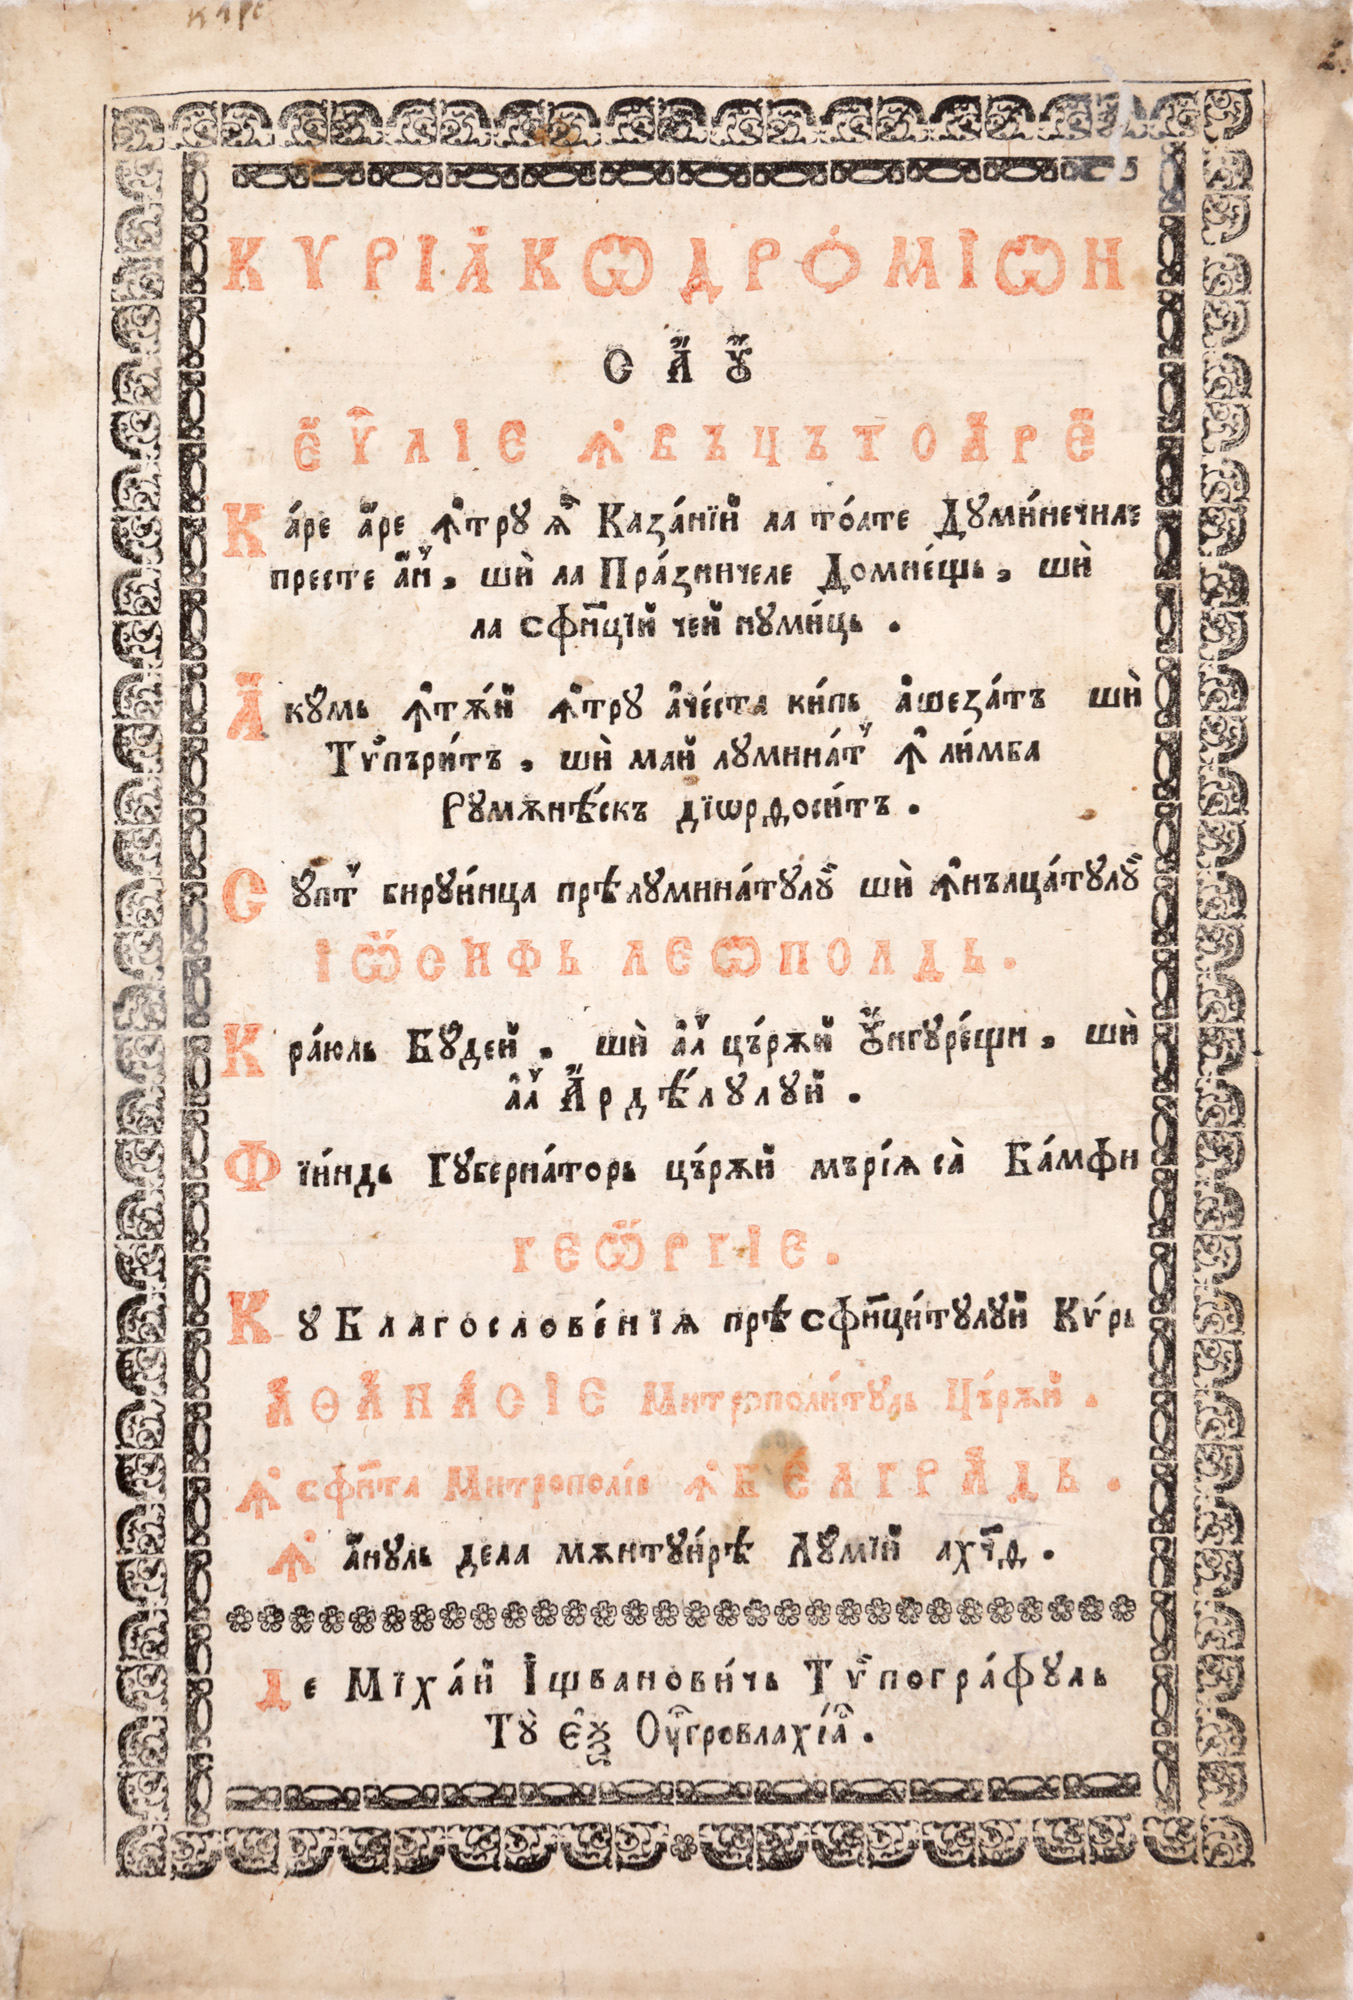 каре
КУРІА́КѠДРО́МІѠН
САꙊ
ЕѴ҃ЛІЕ ꙞВЪЦЪТОАРЕ
Ка́ре а҆́ре ꙟ҆́тру ѧ҆̑ Каза́нїй ла то́ате Думи́нечиле
престе а҆́н꙽, шѝ ла Пра́зничеле Домне́щь, шѝ
ла сфин҃цїй чей нуми́ць .
А҆кꙋ́мь ꙟ҆тѫ́й ꙟ҆тру а҆че́ста ки́пь а҆шеза́тъ шѝ
Тѵпъри́тъ , шѝ май лумина́т ꙟ҆ ли́мба
Румѫнѣ́скъ дїѡрѳоси́тъ .
Сꙋпт бируи́нца прѣлумина́тулꙋй шѝ ꙟ҆нълца́тулꙋй
ІѠСИФЬ ЛЕѠПОЛДЬ .
Кра́юль Бꙋдей , шѝ а҆л цъ́рѫй Ꙋ҆нгꙋре́щи , шѝ
а҆л А҆рдѣ́лулуй .
Фїи́ндь Гꙋберна́торь цъ́рѫй мърі́ѧ са̀ Ба́мфи
ГЕѠРГІЕ .
Ку Благослове́нїѧ прѣ сфин҃ци́тулуй Кѵ́рь
АѲАНА́СІЕ Митрополи́тꙋль Цъ́рѫй .
Ꙟ҆ сфн҃та Митрополі́е ꙟ҆ БЕЛГРАДЬ .
Ꙟ҆ а҆́нуль дела мѫнтуи́рѣ Лꙋмїй ахч҃ѳ .
Де Мїха́й І҆щванови́чь Тѵпогра́фуль
Тꙋ̀ е҆ѯ Оу҆гровлахі́а .